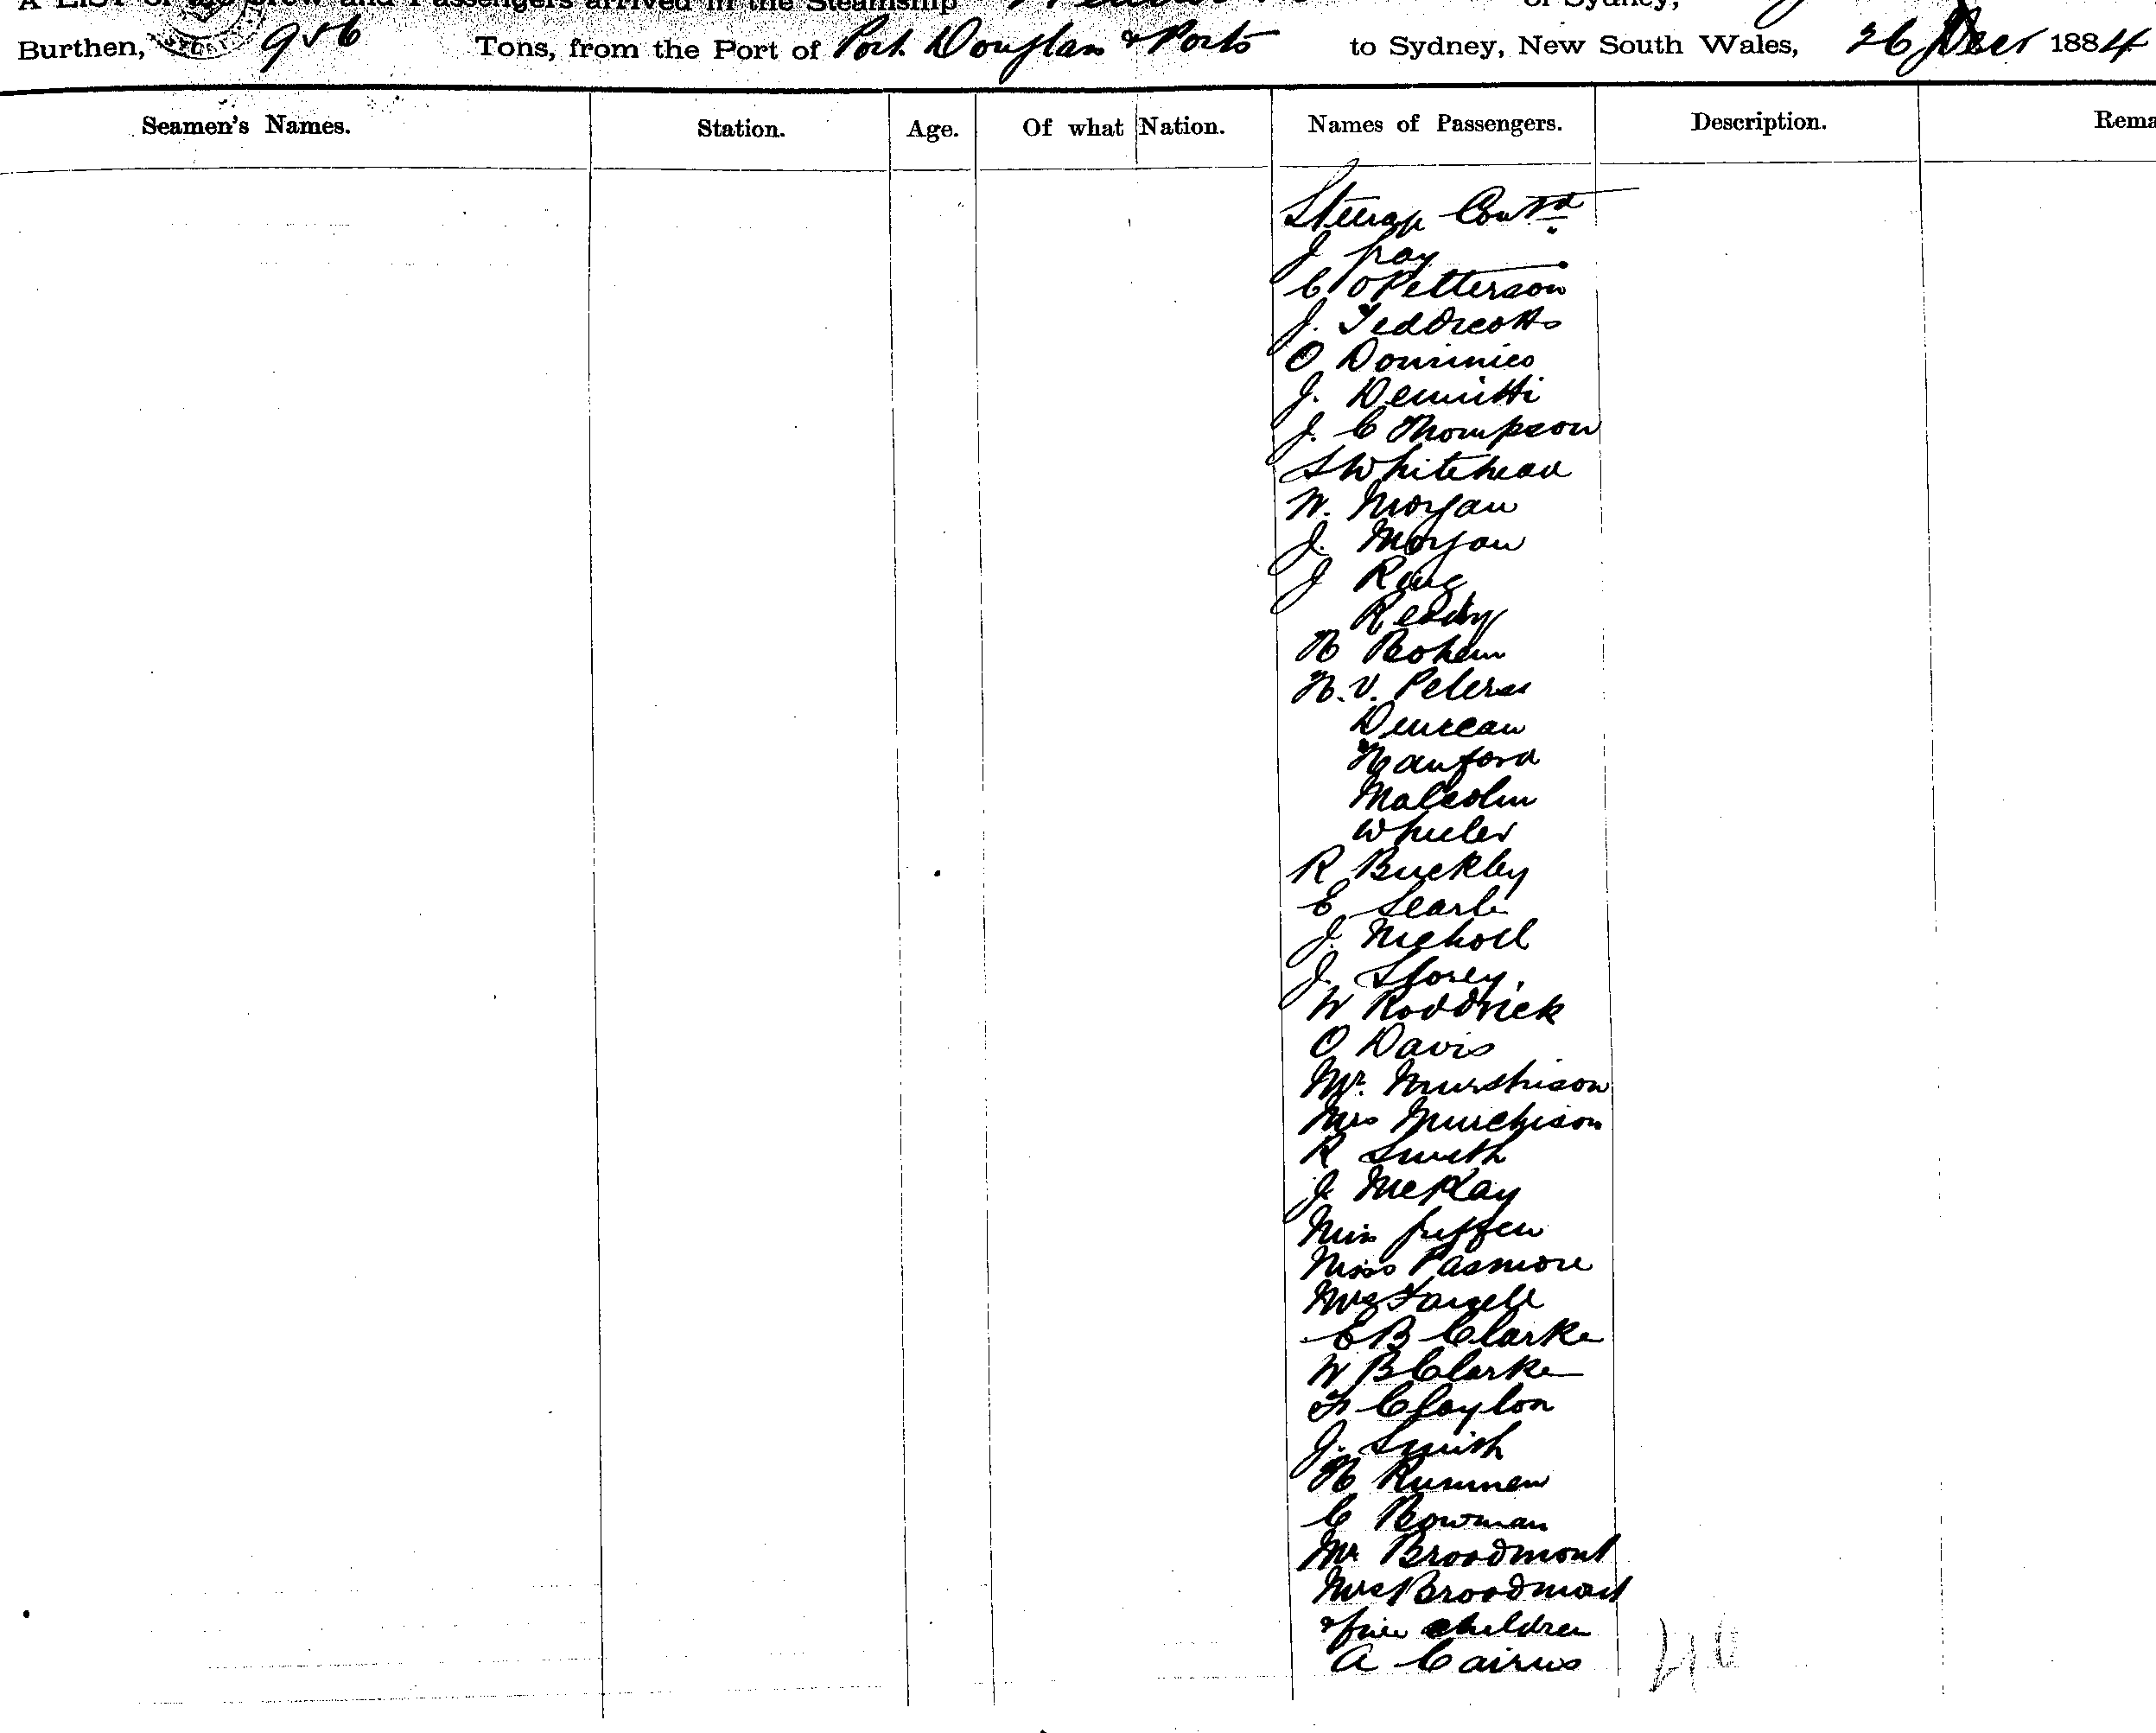 A LIST of the Crew and Passengers arrived in the Steamship of Sydney,
Burthen, 956 Tons, from the Port of Port Douglas & Ports to Sydney, New South Wales, 26 Decr 1884
Seamen's Names. Station. Age. Of what Nation. Names of Passengers. Description. Rema
Steerage Contd
J Gay
C O Petterson
J. Teddicotts
O Dominico
J. Demitti
J. C Thompson
S Whitehead
W. Morgan
J. Morgan
J Ring
Reddy
H Bohem
H. V. Peters
Duncan
Hanford
Malcolm
Wheeler
R Buckley
E Searle
J. Nicholl
J. Storey
W Roddrick
O Davis
Mr. Murchison
Mrs Murchison
R Smith
J McKay
Miss Giffen
Miss Pasmore
Mrs Fargell
E B Clarke
W B Clarke
F Clayton
J. Smith
H Rummen
C Bowman
Mr Broodmont
Mrs Broodmont
& five children
A Cairns